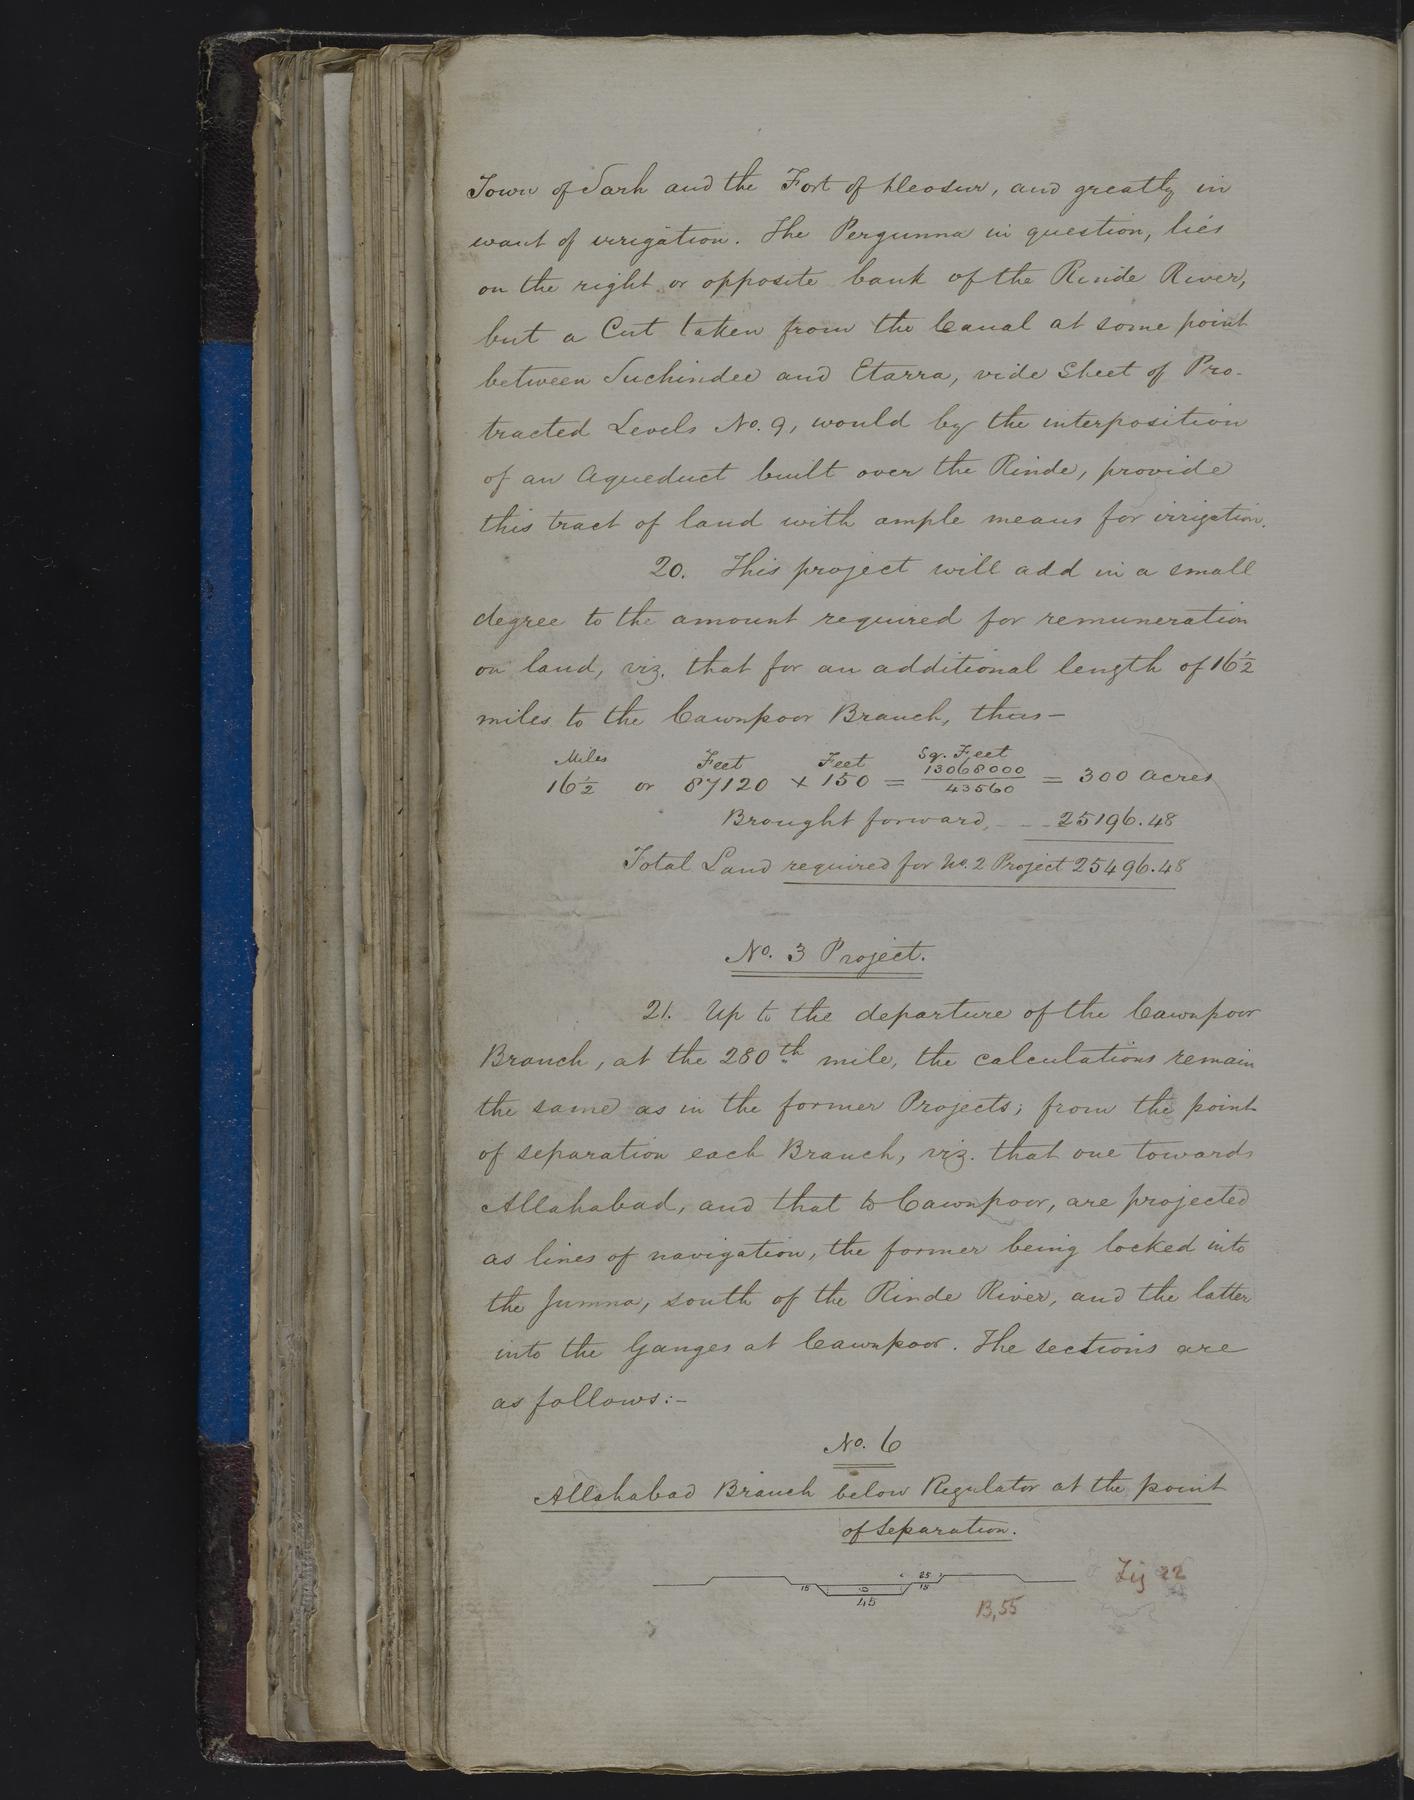 Town of Sarh and the Fort of Deosur, and greatly in
want of irrigation. The Pergunna in question, lies
on the right or opposite bank of the Rinde River,
but a Cut taken from the Canal at some point
between Suchindee and Etarra, vide Sheet of Pro-
tracted Levels No. 9, would by the interposition
of an Aqueduct built over the Rinde, provide
this tract of land with ample means for irrigation.
20. This project will add in a small
degree to the amount required for remuneration
on land, viz. that for an additional length of 16½
miles to the Cawnpoor Branch, thus—
Miles Feet Feet Sq. Feet
16½ or 87120 × 150 = 13068000/43560 = 300 acres
Brought forward, - - 25196.48
Total Land required for No. 2 Project 25496.48
No. 3 Project.
21. Up to the departure of the Cawnpoor
Branch, at the 280th mile, the calculations remain
the same as in the former Projects; from the point
of separation each Branch, viz. that one towards
Allahabad, and that to Cawnpoor, are projected
as lines of navigation, the former being locked into
the Jumna, south of the Rinde River, and the latter
into the Ganges at Cawnpoor. The sections are
as follows:-
No. 6
Allahabad Branch below Regulator at the point
of Separation.
25
15 6 15
45
Fig 22
B,55